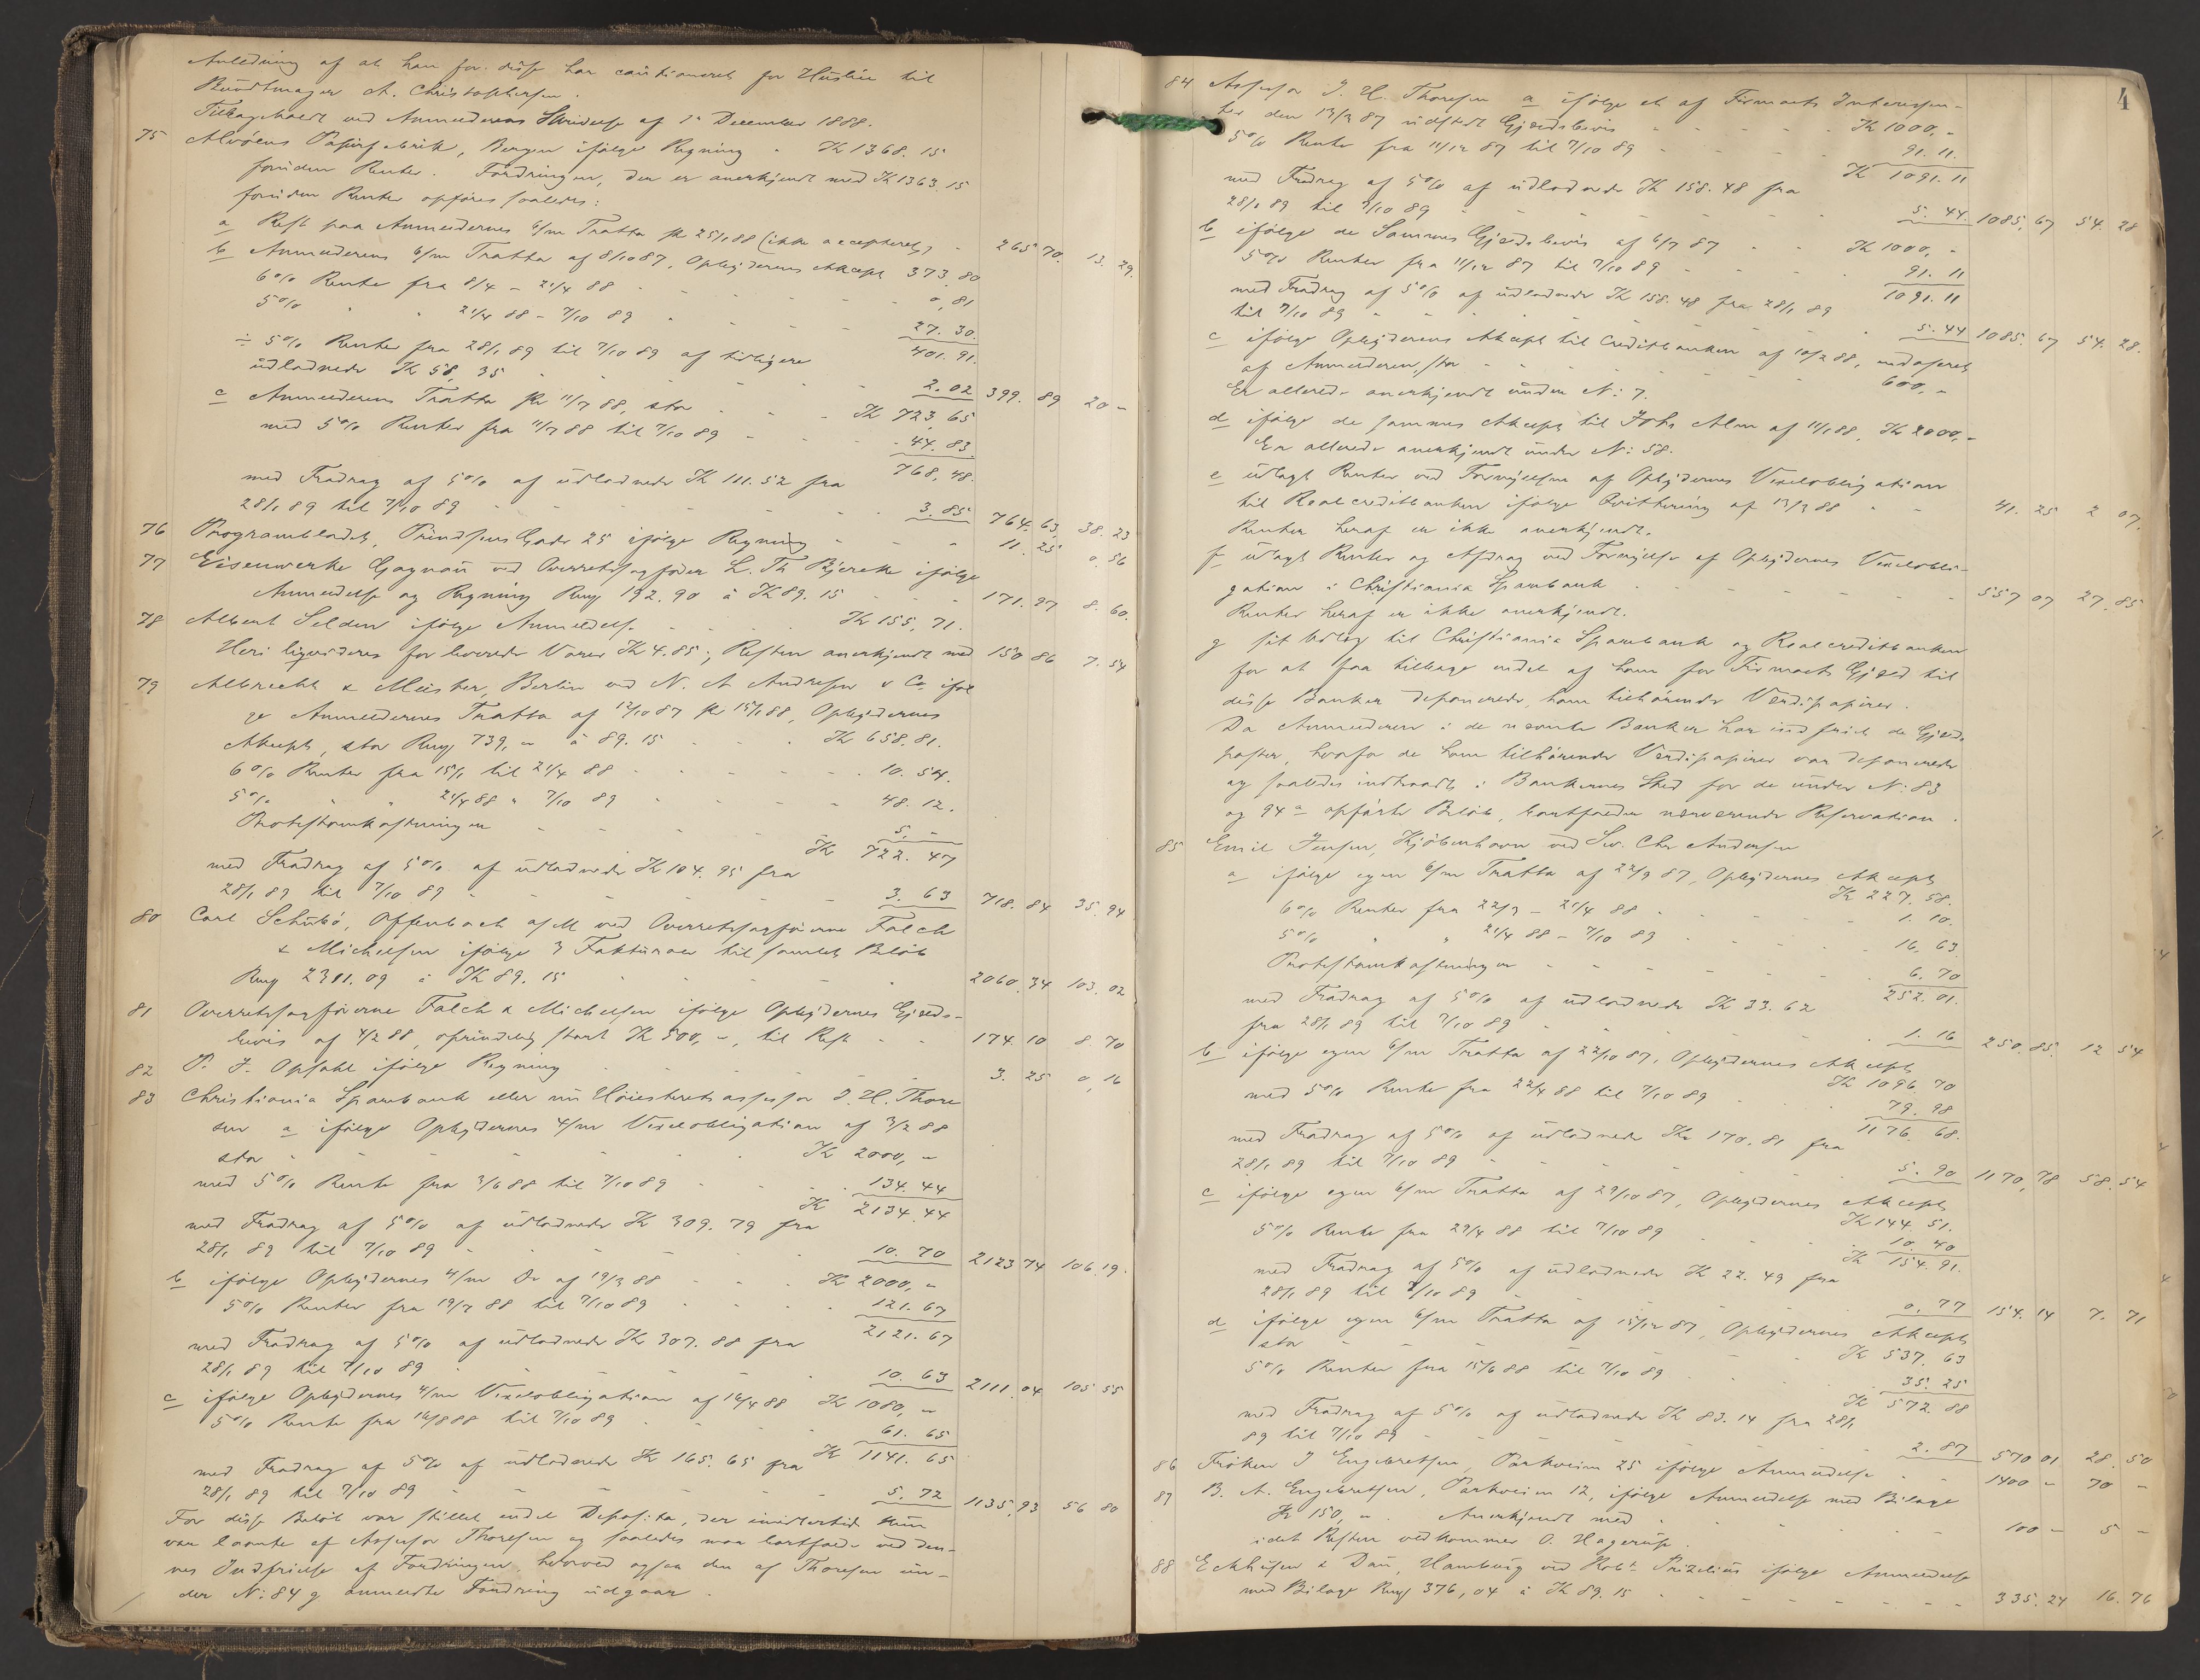 Anledning af at han for disse har cautioneret for Husleie til
Buntmager A. Christophersen.
Tilbagekaldt ved Anmelderens Skrivelse af 1ste December 1888.
75 Alvöens Papirfabrik, Bergen ifölge Regning - K 1368. 15
foruden Renter. Fordringen, der er anerkjendt med K 1363. 15
foruden Renter opföres saaledes:
a Rest paa Anmeldernes 6/m Tratta pr 25/1 88 (ikke accepteret) - 265 70. 13. 29.
b Anmelderens 6/m Tratta af 8/10 87, Opbydernes Akcept 373. 80
6% Rente fra 8/4 - 21/4 88 0,81
5% " " 21/4 88 - 7/10 89 27. 30.
401. 91.
÷ 5% Renter fra 28/1 89 til 7/10 89 af tidligere
udlodnede K 58,35 2. 02 399. 89 20 -
c Anmelderens Tratta pr 11/7 88, stor K 723,65
med 5% Renter fra 11/7 88 til 7/10 89 44. 83.
768,48.
med Fradrag af 5% af udlodnede K 111. 52 fra
28/1 89 til 7/10 89 3. 85 764. 63. 38. 23
76 Programbladet, Prindsens Gade 25 ifölge Regning 11. 25 0. 56
77 Eisenwerke Gagnau ved Overretssagförer L. Th. Bjerche ifölge
Anmeldelse og Regning Rmk 192. 90 à K 89. 15 171. 97 8. 60.
78 Albert Selden ifölge Anmeldelse K 155, 71.
Heri ligvideres for leverede Varer K 4. 85; Resten anerkjendt med 150 86 7. 54
79 Albrecht & Meister, Berlin ved N. A. Andresen & Co. iföl
ge Anmeldernes Tratta af 12/10 87 pr 15/1 88, Opbydernes
Akcept, stor Rmk 739, - à 89. 15 K 658. 81.
6% Renter fra 15/1 til 21/4 88 10. 54.
5% " " 21/4 88 " 7/10 89 48. 12.
Protestomkostninger 5. -
K 722. 47
med Fradrag af 5% af udlodnede K 104. 95 fra
28/1 89 til 7/10 89 3. 63 718. 84 35. 94
80 Carl Schübö, Offenbach a/M ved Overretssagförerne Falch
& Michelsen ifölge 3 Fakturaer til samlet Belöb
Rmk 2311. 09 à K 89. 15 2060. 34 103. 02
81 Overretssagförerne Falch & Michelsen ifölge Opbydernes Gjelds-
bevis af 4/2 88, oprindelig stort K 500, -, til Rest 174. 10 8. 70
82 P. J. Opsahl ifölge Regning 3. 25 0,16
83 Christiania Sparebank eller nu Höiesteretsassessor J. H. Thore
sen a ifölge Opbydernes 4/m Vexelobligation af 3/2 88
stor K 2000, -
med 5% Rente fra 3/6 88 til 7/10 89 134. 44
K 2134. 44
med Fradrag af 5% af udlodnede K 309. 79 fra
28/1 89 til 7/10 89 10. 70 2123 74 106. 19.
b ifölge Opbydernes 4/m Do af 19/3 88 K 2000, -
5% Renter fra 19/7 88 til 7/10 89 121. 67
2121. 67
med Fradrag af 5% af udlodnede K 307. 88 fra
28/1 89 til 7/10 89 10. 63 2111. 04 105 55
c ifölge Opbydernes 4/m Vexelobligation af 16/4 88 K 1080, -
5% Rente fra 16/8 88 til 7/10 89 61. 65
K 1141. 65
med Fradrag af 5% af udlodnede K 165. 65 fra
28/1 89 til 7/10 89 5. 72 1135. 93 56 80
For disse Belöb var stillet endel Deposita, der imidlertid kun
var laante af Assessor Thoresen og saaledes maa bortfalde ved den-
nes Indfrielse af Fordringen, hvorved ogsaa den af Thoresen un-
der No: 84 g anmeldte Fordring udgaar.
4
84 Assessor J. H. Thoresen a ifölge et af Firmaets Interessen-
ter den 13/3 87 udstedt Gjeldsbevis K 1000, -
5% Renter fra 11/12 87 til 7/10 89 91. 11.
K 1091. 11
med Fradrag af 5% af udlodnede K 158. 48 fra
28/1 89 til 7/10 89 5. 44. 1085. 67 54. 28
b ifölge de Sammes Gjeldsbevis af 6/7 87 K 1000, -
5% Renter fra 11/12 87 til 7/10 89 91. 11
1091. 11
med Fradrag af 5% af udlodnede K 158. 48 fra 28/1 89
til 7/10 89 5. 44 1085. 67 54. 28.
c ifölge Opbydernes Akcept til Creditbanken af 10/2 88, endosseret
af Anmelderen, stor 600, -
Er allerede anerkjendt under No: 7.
d ifölge de sammes Akcept til Johs Alm af 11/1 88, K 2000, -
Er allerede anerkjendt under No: 58.
e udlagt Renter ved Fornyelsen af Opbydernes Vexelobligation
til Realcreditbanken ifölge Qvittering af 13/3 88 41. 25 2 07.
Renter heraf er ikke anerkjendt.
f udlagt Renter og Afdrag ved Fornyelse af Opbydernes Vexelobli-
gation i Christiania Sparebank 557 07 27. 85
Renter heraf er ikke anerkjendt.
g sit Udlæg til Christiania Sparebank og Realcreditbanken
for at faa tilbage endel af ham for Firmaets Gjæld til
disse Banker deponerede, ham tilhörende Værdipapirer.
Da Anmelderen i de nævnte Banker har indfriet de Gjælds
poster, hvorfor de ham tilhörende Værdipapirer var deponerede
og saaledes indtraadt i Bankernes Sted for de under No: 83
og 94 a opförte Belöb, bortfalder nærværende Reservation.
85 Emil Jensen, Kjöbenhavn ved Sv. Chr Andersen
a ifölge egen 6/m Tratta af 22/9 87, Opbydernes Akcept
K 227. 58.
6% Renter fra 22/3 - 21/4 88 1. 10.
5% " " 21/4 88 - 7/10 89 16. 63
Protestomkostninger 6. 70
252. 01.
med Fradrag af 5% af udlodnede K 33. 62
fra 28/1 89 til 7/10 89 1. 16 250. 85. 12 54
b ifölge egen 6/m Tratta af 22/10 87, Opbydernes Akcept
K 1096 70
med 5% Renter fra 22/4 88 til 7/10 89 79. 98
1176. 68.
med Fradrag af 5% af udlodnede Kr 170. 81 fra
28/1 89 til 7/10 89 5. 90 1170. 78 58. 54
c ifölge egen 6/m Tratta af 29/10 87, Opbydernes Akcept
K 144. 51.
5% Renter fra 29/4 88 til 7/10 89 10. 40
K 154. 91.
med Fradrag af 5% af udlodnede K 22. 49 fra
28/1 89 til 7/10 89 0. 77 154. 14 7. 71
d ifölge egen 6/m Tratta af 15/12 87, Opbydernes Akcept
stor K 537. 63
5% Renter fra 15/6 88 til 7/10 89 35. 25
K 572. 88
med Fradrag af 5% af udlodnede K 83. 14 fra 28/1
89 til 7/10 89 2. 87 570 01 28. 50
86 Fröken J Engebretsen, Parkveien 25 ifölge Anmeldelse 1400 - 70 -
87 B. A. Engebretsen, Parkveien 12, ifölge Anmeldelse med Bilage
K 150, -. Anerkjendt med 100 - 5 -
idet Resten vedkommer O. Hagerup.
88 Eckhusen & Dau, Hamburg ved Robt Prizelius ifölge Anmeldelse
med Bilage Rmk 376,04 à K 89. 15 335. 24 16. 76